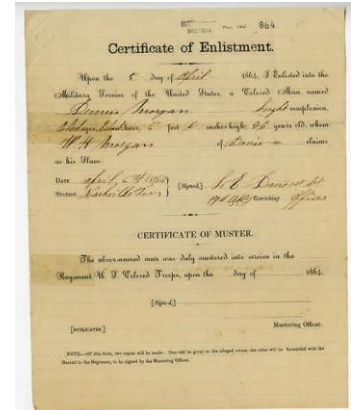 864
Certificate of Enlistment.
Upon the 5 day of April 1864, I Enlisted into the
Military Service of the United States, a Colored Man named
Dennis Morgan light complexion,
feet 6 inches high; 26 years old, whom
W H Morgan of claims
as his Slave.
Date April 5th 1864
Station [Signed.]
Recruiting Officer
CERTIFICATE OF MUSTER.
The above-named man was duly mustered into service in the
Regiment U. S. Colored Troops, upon the day of 1864.
[Signed.]
[DUPLICATES.] Mustering Officer.
NOTE.—Of this form, two copies will be made. One will be given to the alleged owner, the other will be forwarded with the
Recruit to the Regiment, to be signed by the Mustering Officer.